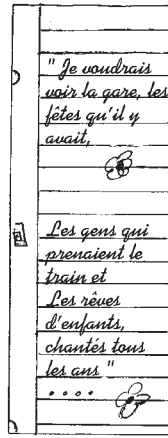 " Je voudrais
voir la gare, les
fêtes qu'il y
avait,
Les gens qui
prenaient le
train et
Les rêves
d'enfants,
chantés tous
les ans "
....